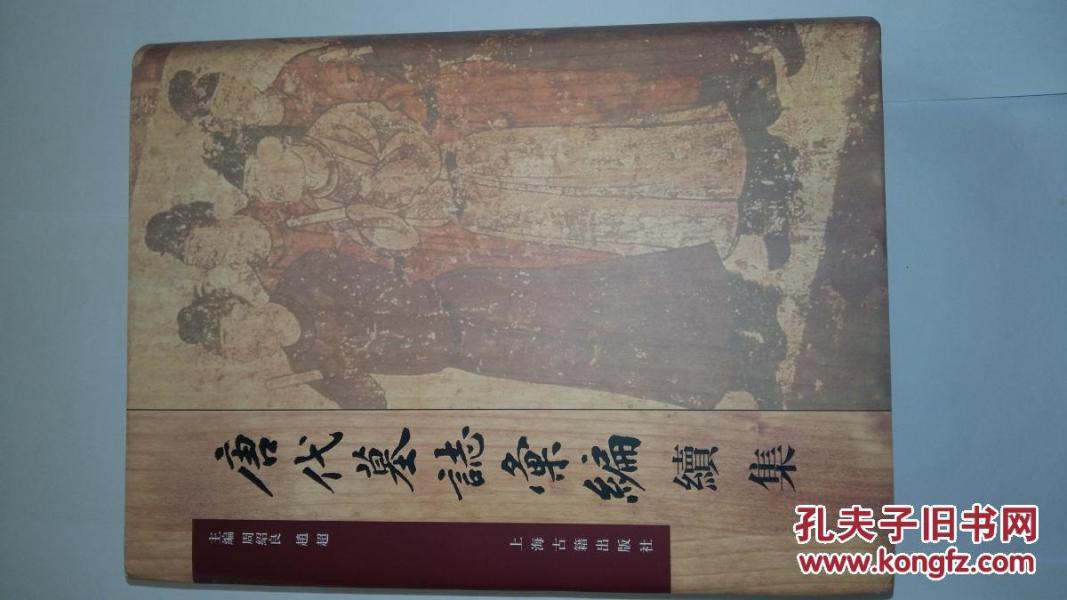 唐代墓誌彙編續集
主編 周紹良 趙超
上海古籍出版社
孔夫子旧书网
www.kongfz.com